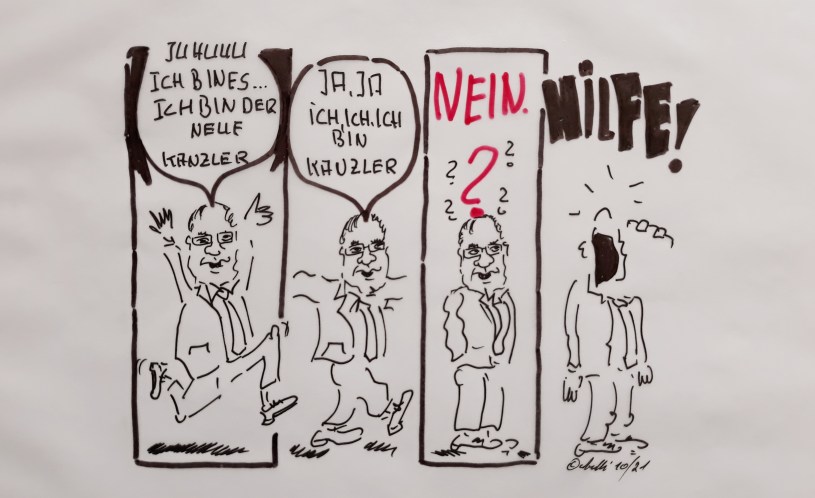 JUHUUU
ICH BINES...
ICH BIN DER
NEUE
KANZLER
JA, JA
ICH, ICH. ICH
BIN
KANZLER
NEIN.
?
? ? ? ?
HILFE!
10/21